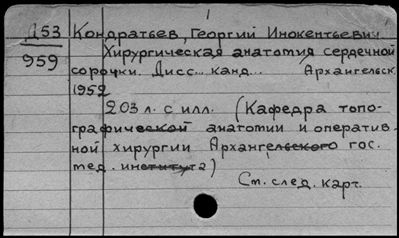 1
Д53 Кондратьев, Георгий Инокентьевич.
959 Хирургическая анатомия сердечной
сорочки. Дисс... канд... Архангельск
1952
203 л. с илл. (Кафедра топо-
графической анатомии и оператив-
ной хирургии Архангельского гос.
мед. института)
См. след. карт.